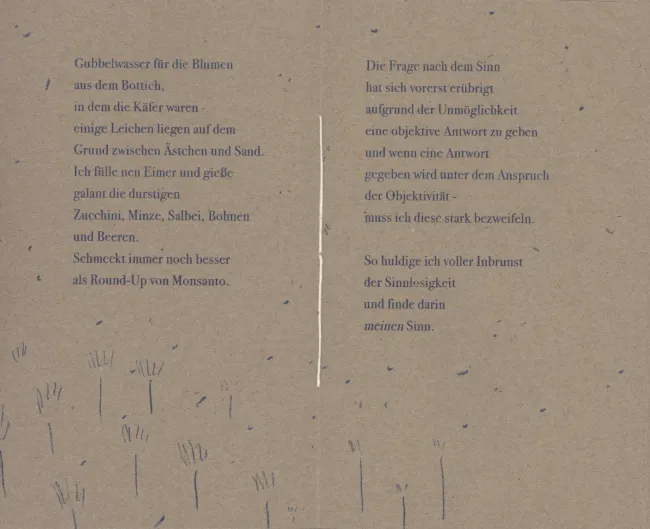 Gubbelwasser für die Blumen
aus dem Bottich,
in dem die Käfer waren -
einige Leichen liegen auf dem
Grund zwischen Ästchen und Sand.
Ich fülle nen Eimer und gieße
galant die durstigen
Zucchini, Minze, Salbei, Bohnen
und Beeren.
Schmeckt immer noch besser
als Round-Up von Monsanto.
Die Frage nach dem Sinn
hat sich vorerst erübrigt
aufgrund der Unmöglichkeit
eine objektive Antwort zu geben
und wenn eine Antwort
gegeben wird unter dem Anspruch
der Objektivität -
muss ich diese stark bezweifeln.
So huldige ich voller Inbrunst
der Sinnlosigkeit
und finde darin
meinen Sinn.